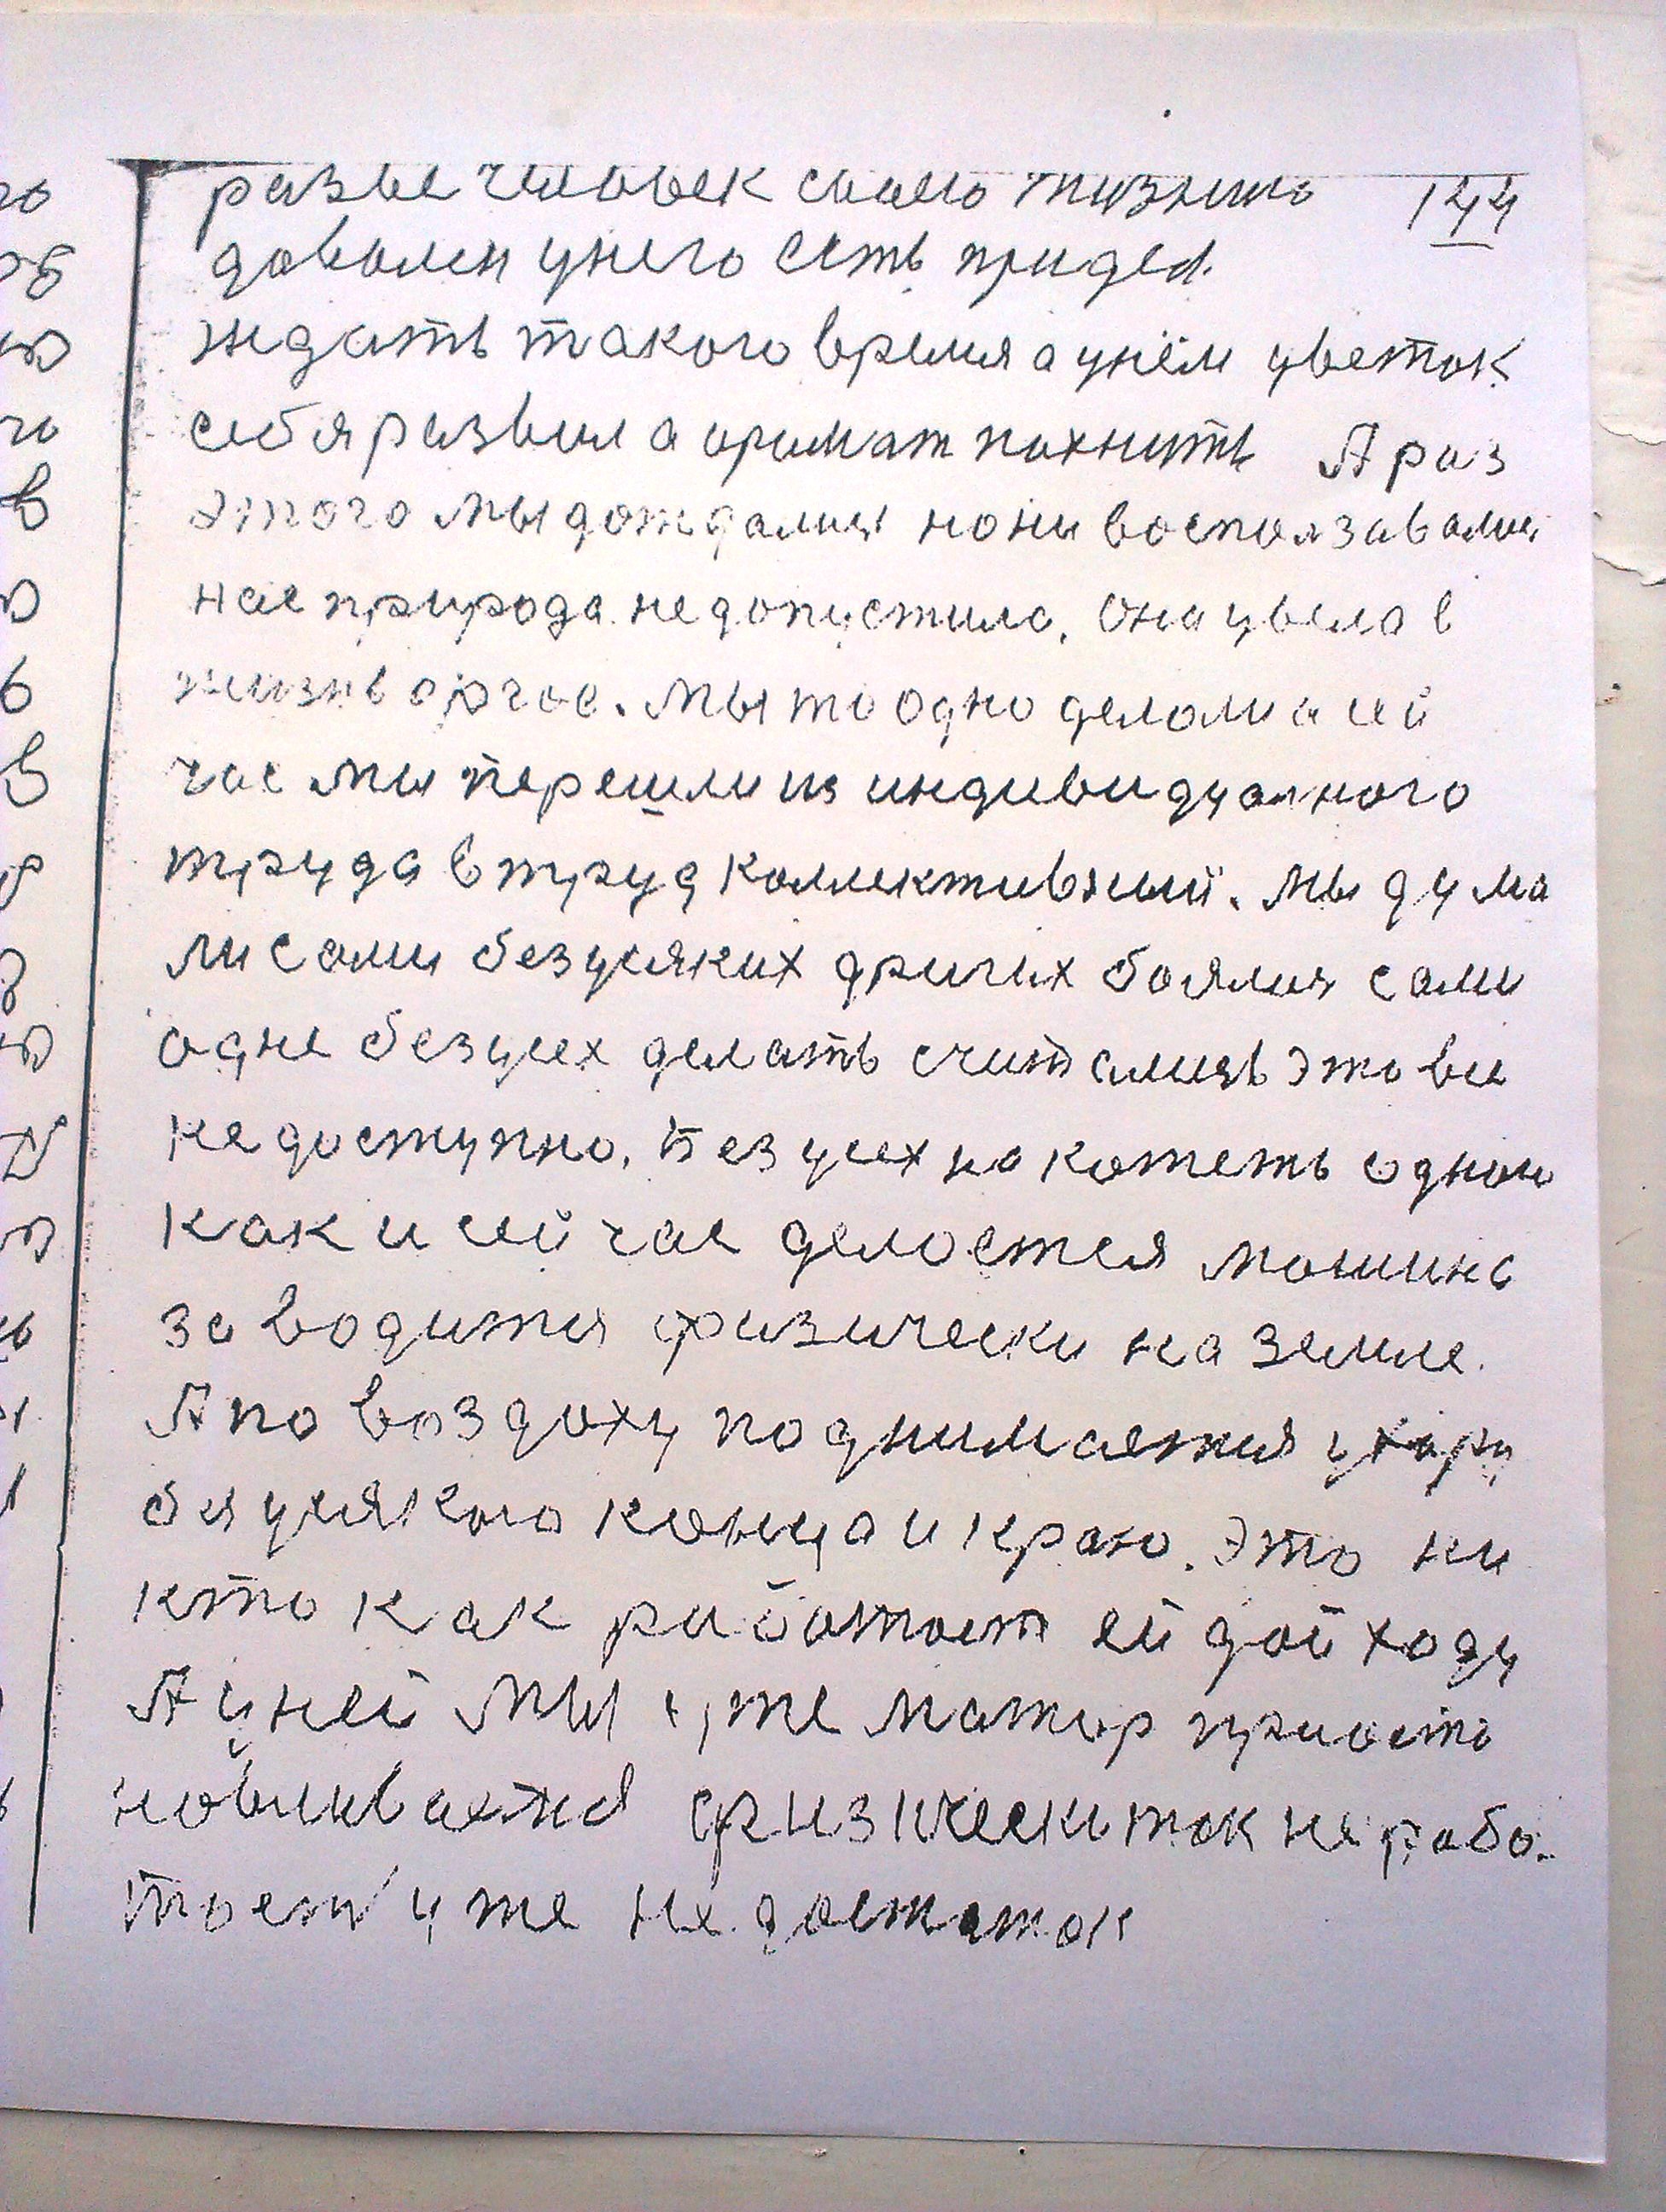 разве человек своею жизнию 144
доволен унего есть придел.
ждать такого время а унём цветок
себя развил а оримат пахнить А раз
этого мы дождалися но ни воспользавались
нас природа недопустила, она увела в
жизнь о рчас. Мы то одно делали а сей
час мы перешли из индивидуалного
труда в труд коллективный. Мы дума
ли сами безусяких других боялися сами
одне безусех делать считались это все
недоступно. Безусех накотеть одною
как и сейчас делается машина
заводится физически на земле.
А по воздоху поднимается
без усякого конца и краю. Это ни
кто как работает ей дай ходу
А уней мы уже матор приоста
новливается физически так ня рабо.
тает уже не достаток